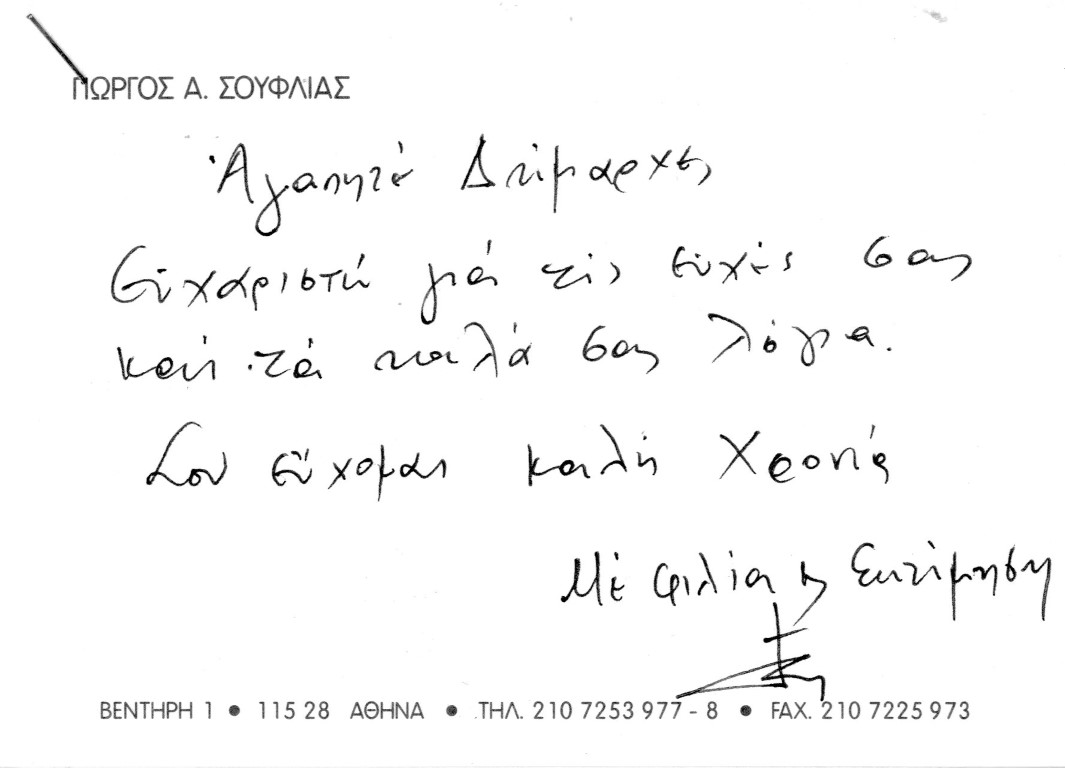 ΓΙΩΡΓΟΣ Α. ΣΟΥΦΛΙΑΣ
Ἀγαπητέ Δήμαρχε,
Εὐχαριστῶ γιά τίς εὐχές σας
καί τά καλά σας λόγια.
Σου εὔχομαι καλή Χρονιά
Μέ φιλία κ Ἐκτίμηση
ΒΕΝΤΗΡΗ 1 • 115 28 ΑΘΗΝΑ • ΤΗΛ. 210 7253 977 - 8 • FAX. 210 7225 973